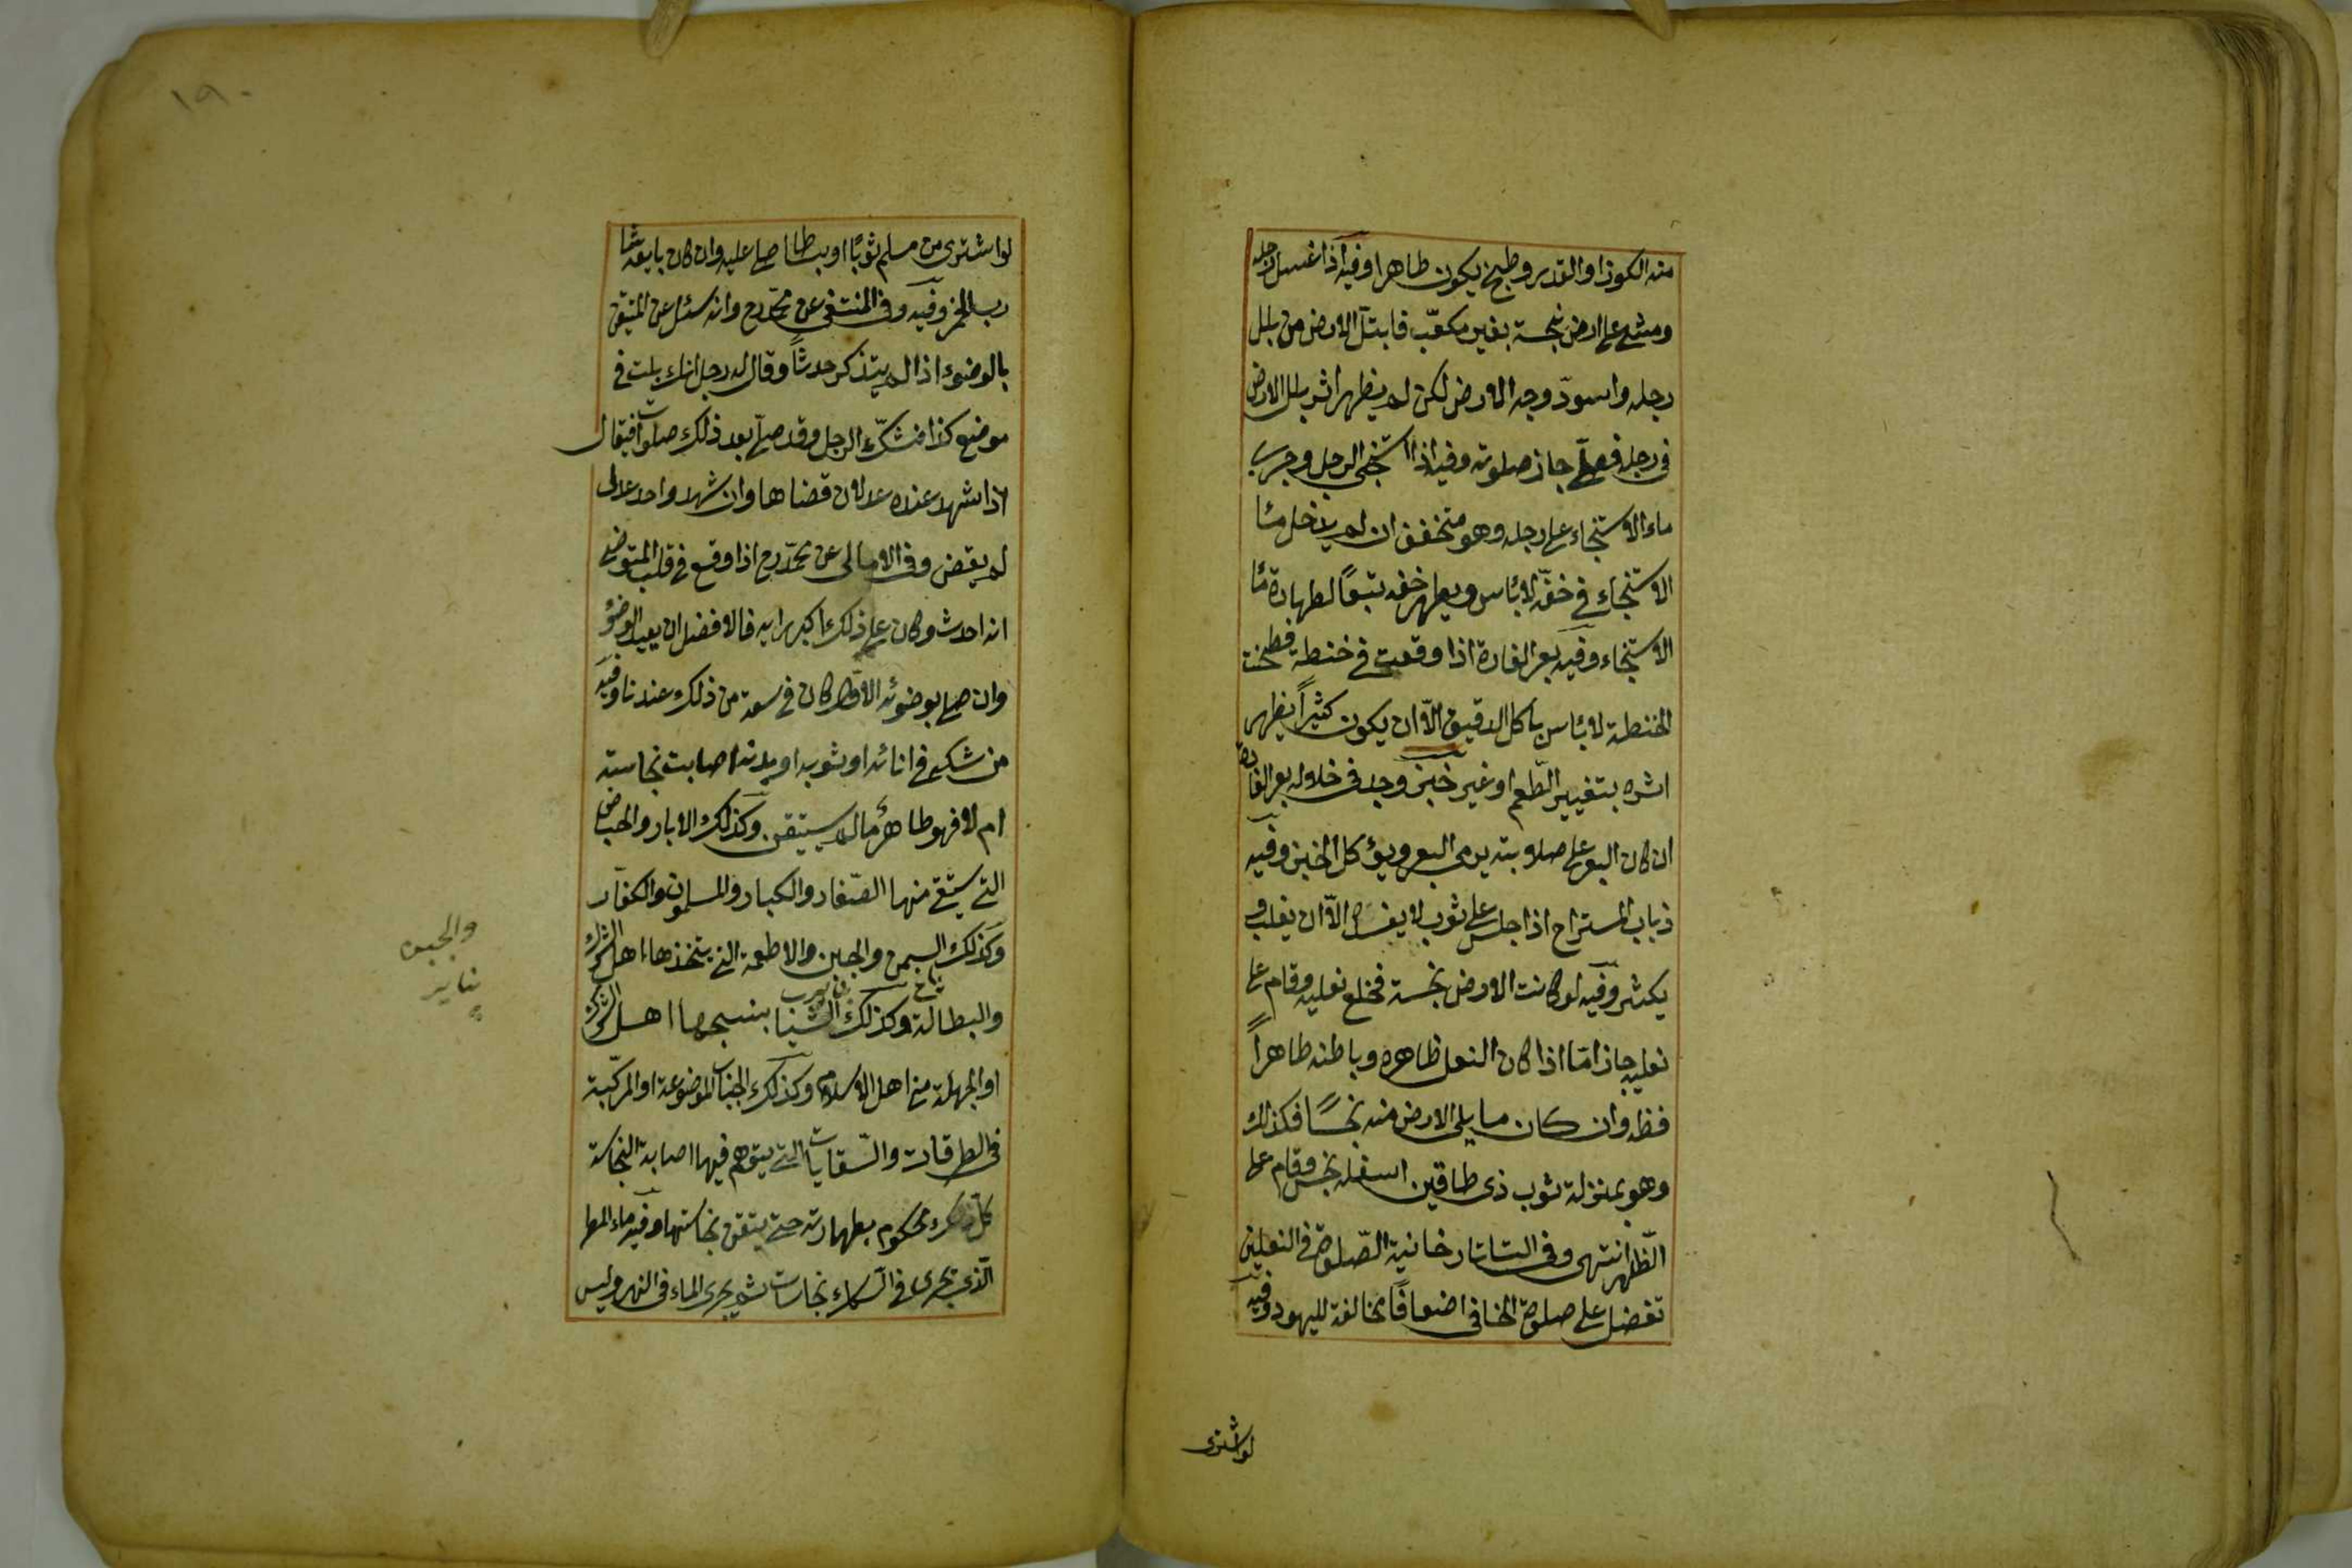 منه الكوز او القدر وطبخ يكون طاهرا وفيه اذا غسل رجله
ومشى على ارض نجسة بغير مكعّب فابتلّ الارض من بلل
رجله واسودّ وجه الارض لكن لم يظهر اثر بلل الارض
فى رجله فصلّى جاز صلوته وفيه اذا استنجى الرجل وجرى
ماء الاستنجاء على رجله وهو متخفف ان لم يدخل ماء
الاستنجاء فى خفّه لا بأس ويطهر خفه تبعًا لطهارة ماء
الاستنجاء وفيه بعر الفارة اذا وقعت فى حنطة فطحنت
الحنطة لا بأس باكل الدقيق الّا ان يكون كثيرًا يظهر
اثره بتغيير الطّعم او غير خبز وجد فى خلاله بعر الفارة
ان كان البعر على صلابته يرمى البعر ويؤكل الخبز وفيه
ذباب المستراح اذا جلس على ثوب لا يفسده الّا ان يغلب و
يكثر وفيه لو كانت الارض نجسة فخلع نعليه وقام على
نعليه جاز امّا اذا كان النعل ظاهره وباطنه طاهراً
فظ وان كان ما يلى الارض منه نجسًا فكذلك
وهو بمنزلة ثوب ذى طاقين اسفله نجس وقام على
الظّاهر انتهى وفى التاتارخانية الصّلوة فى النعلين
تفضل على صلوة الحافى اضعافًا مخالفة لليهود وفيه
لو اشترى
١٩٠
لو اشترى من مسلم ثوبًا او بساطا صلى عليه وان كان بايعه شا
رب الخمر وفيه وفى المنتقى عن محمّد رح وانه سئل عن المتيقن
بالوضوء اذا لم يتذكر حدثًا وقال له رجل انك بلت فى
موضع كذا فشكّ الرجل وقد صلّى بعد ذلك صلوات فقال
اذا شهد عنده عدلان قضاها وان شهد واحد عدل
لم يقض وفى الامالى عن محمّد رح اذا وقع فى قلب المتوضى
انه احدث وكان على ذلك اكبر رايه فالافضل ان يعيد الوضوء
وان صلى بوضوئه الاوّل كان فى سعة من ذلك عندنا وفيه
من شك فى انائه او ثوبه او بدنه اصابت نجاسته
ام لا فهو طاهر ما لم يستيقن وكذلك الابار والحياض
التى يستقى منها الصّغار والكبار والمسلمون والكفّار
وكذلك السمن والجبن والاطعمة التى يتخذها اهل الشرك
والبطالة وكذلك الثياب ينسجها اهل الشرك
او الجهلة من اهل الاسلام وكذلك الجباب الموضوعة او المركبة
فى الطرقات والسّقايات التى يتوهم فيها اصابة النجاسة
كلّ ذلك محكوم بطهارته حتى يتيقن نجاستها وفيه ماء المطر
الّذى يجرى فى السكك نجاسات ثم يجرى الماء فى النهر وليس